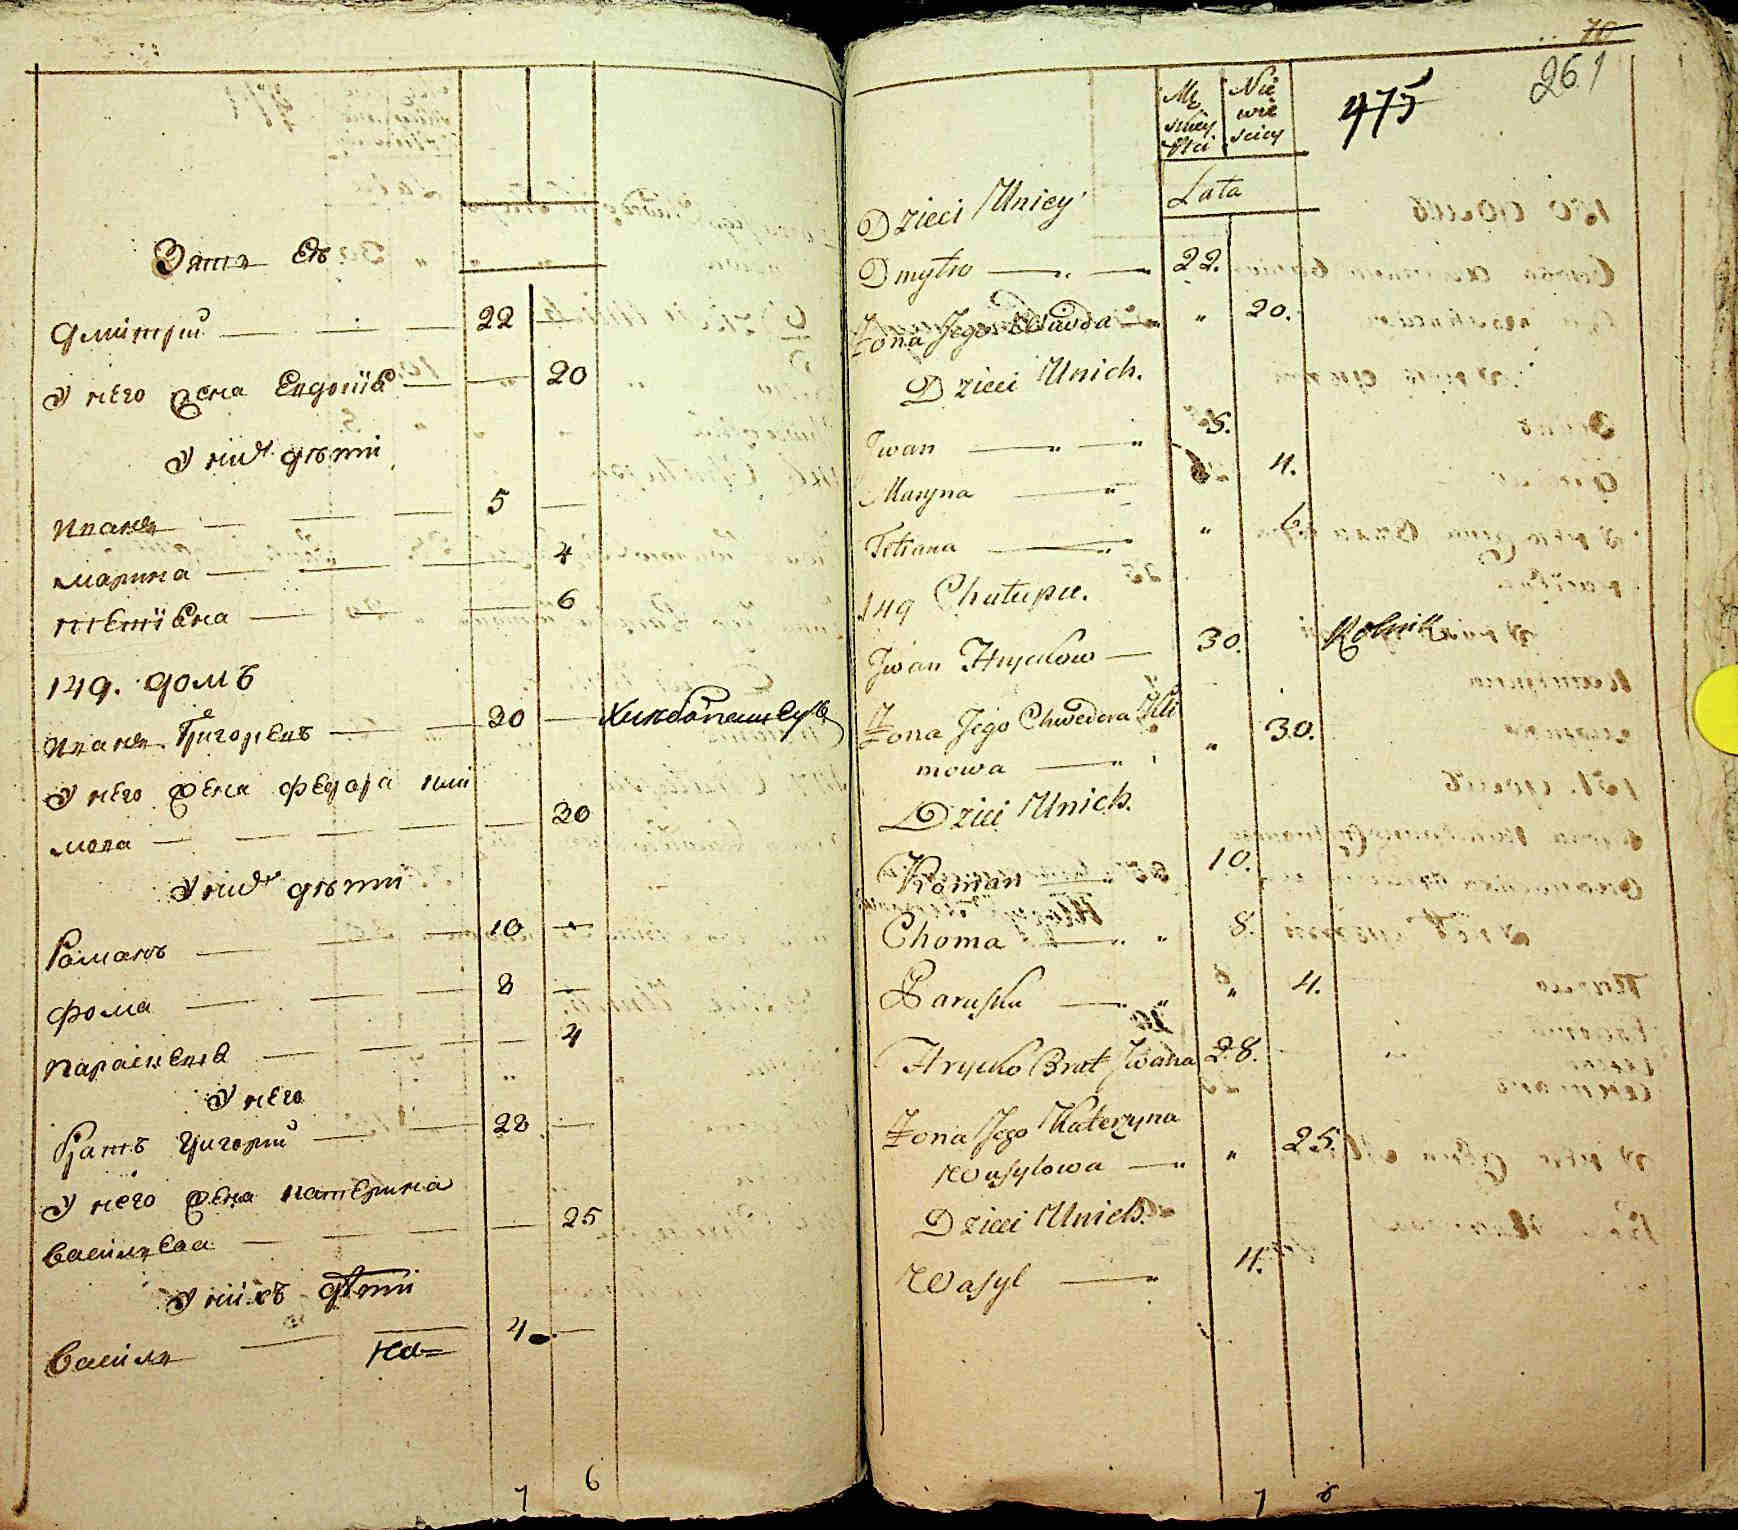 Зятъ Ев
Дмитрий — 22
У него жена Евдокия — 20
У них дѣти
Иванъ — 5 —
Марина — 4
Тетіяна — 6
149. домъ
Иванъ Григориевъ — 30 — Хлебопашецъ
У него жена Федора Кли
мова — 30
У них дѣти
Романъ — 10 —
Фома — 8 —
Параскева — 4
У него
братъ Григорий — 28 —
У него жена Катерина
Васильева — 25
У нихъ дѣти
Василь — 4 —
7 6
70
261
475
Mę
skiey
płci
Nie
wie
sciey
Lata
Dzieci Uniey
Dmytro — 22.
Żona Jego — " 20.
Dzieci Unich.
Iwan — 5.
Maryna — 4.
Tetiana — " 6
149 Chałupa.
Iwan Hryckow — 30. Rolnik
Żona Jego Chwedora Kli
mowa — " 30.
Dzieci Unich.
Roman — 10.
Choma — " 8.
Paraska — " " 4.
Hrycko Brat Iwana 28.
Żona Jego Kateryna
Wasylowa — " 25
Dzieci Unich.
Wasyl — 4.
7 6